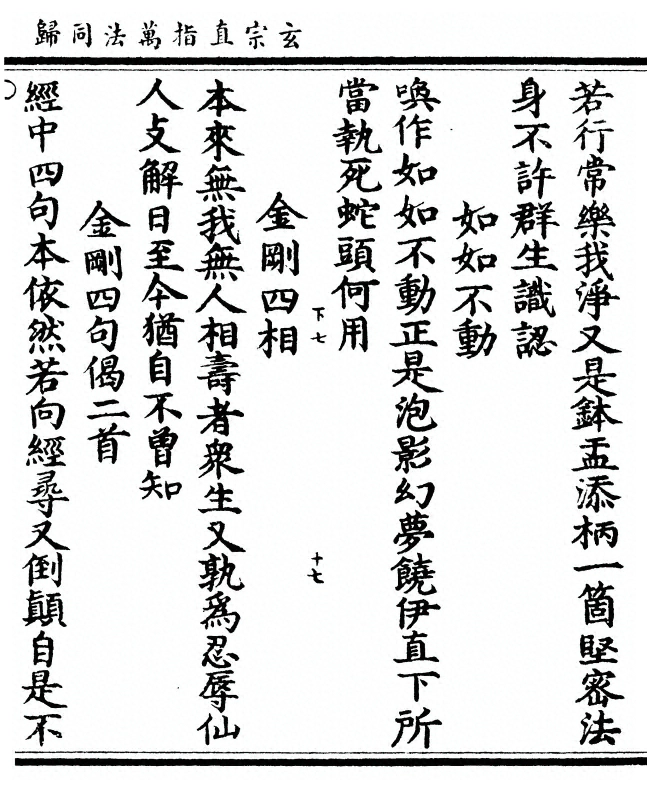 玄宗直指萬法同歸
若行常樂我淨又是鉢盂添柄一箇堅密法
身不許群生識認
如如不動
喚作如如不動正是泡影幻夢饒伊直下所
當執死蛇頭何用
下七
十七
金剛四相
本來無我無人相壽者衆生又孰爲忍辱仙
人攴解日至今猶自不曾知
金剛四句偈二首
經中四句本依然若向經尋又倒顛自是不